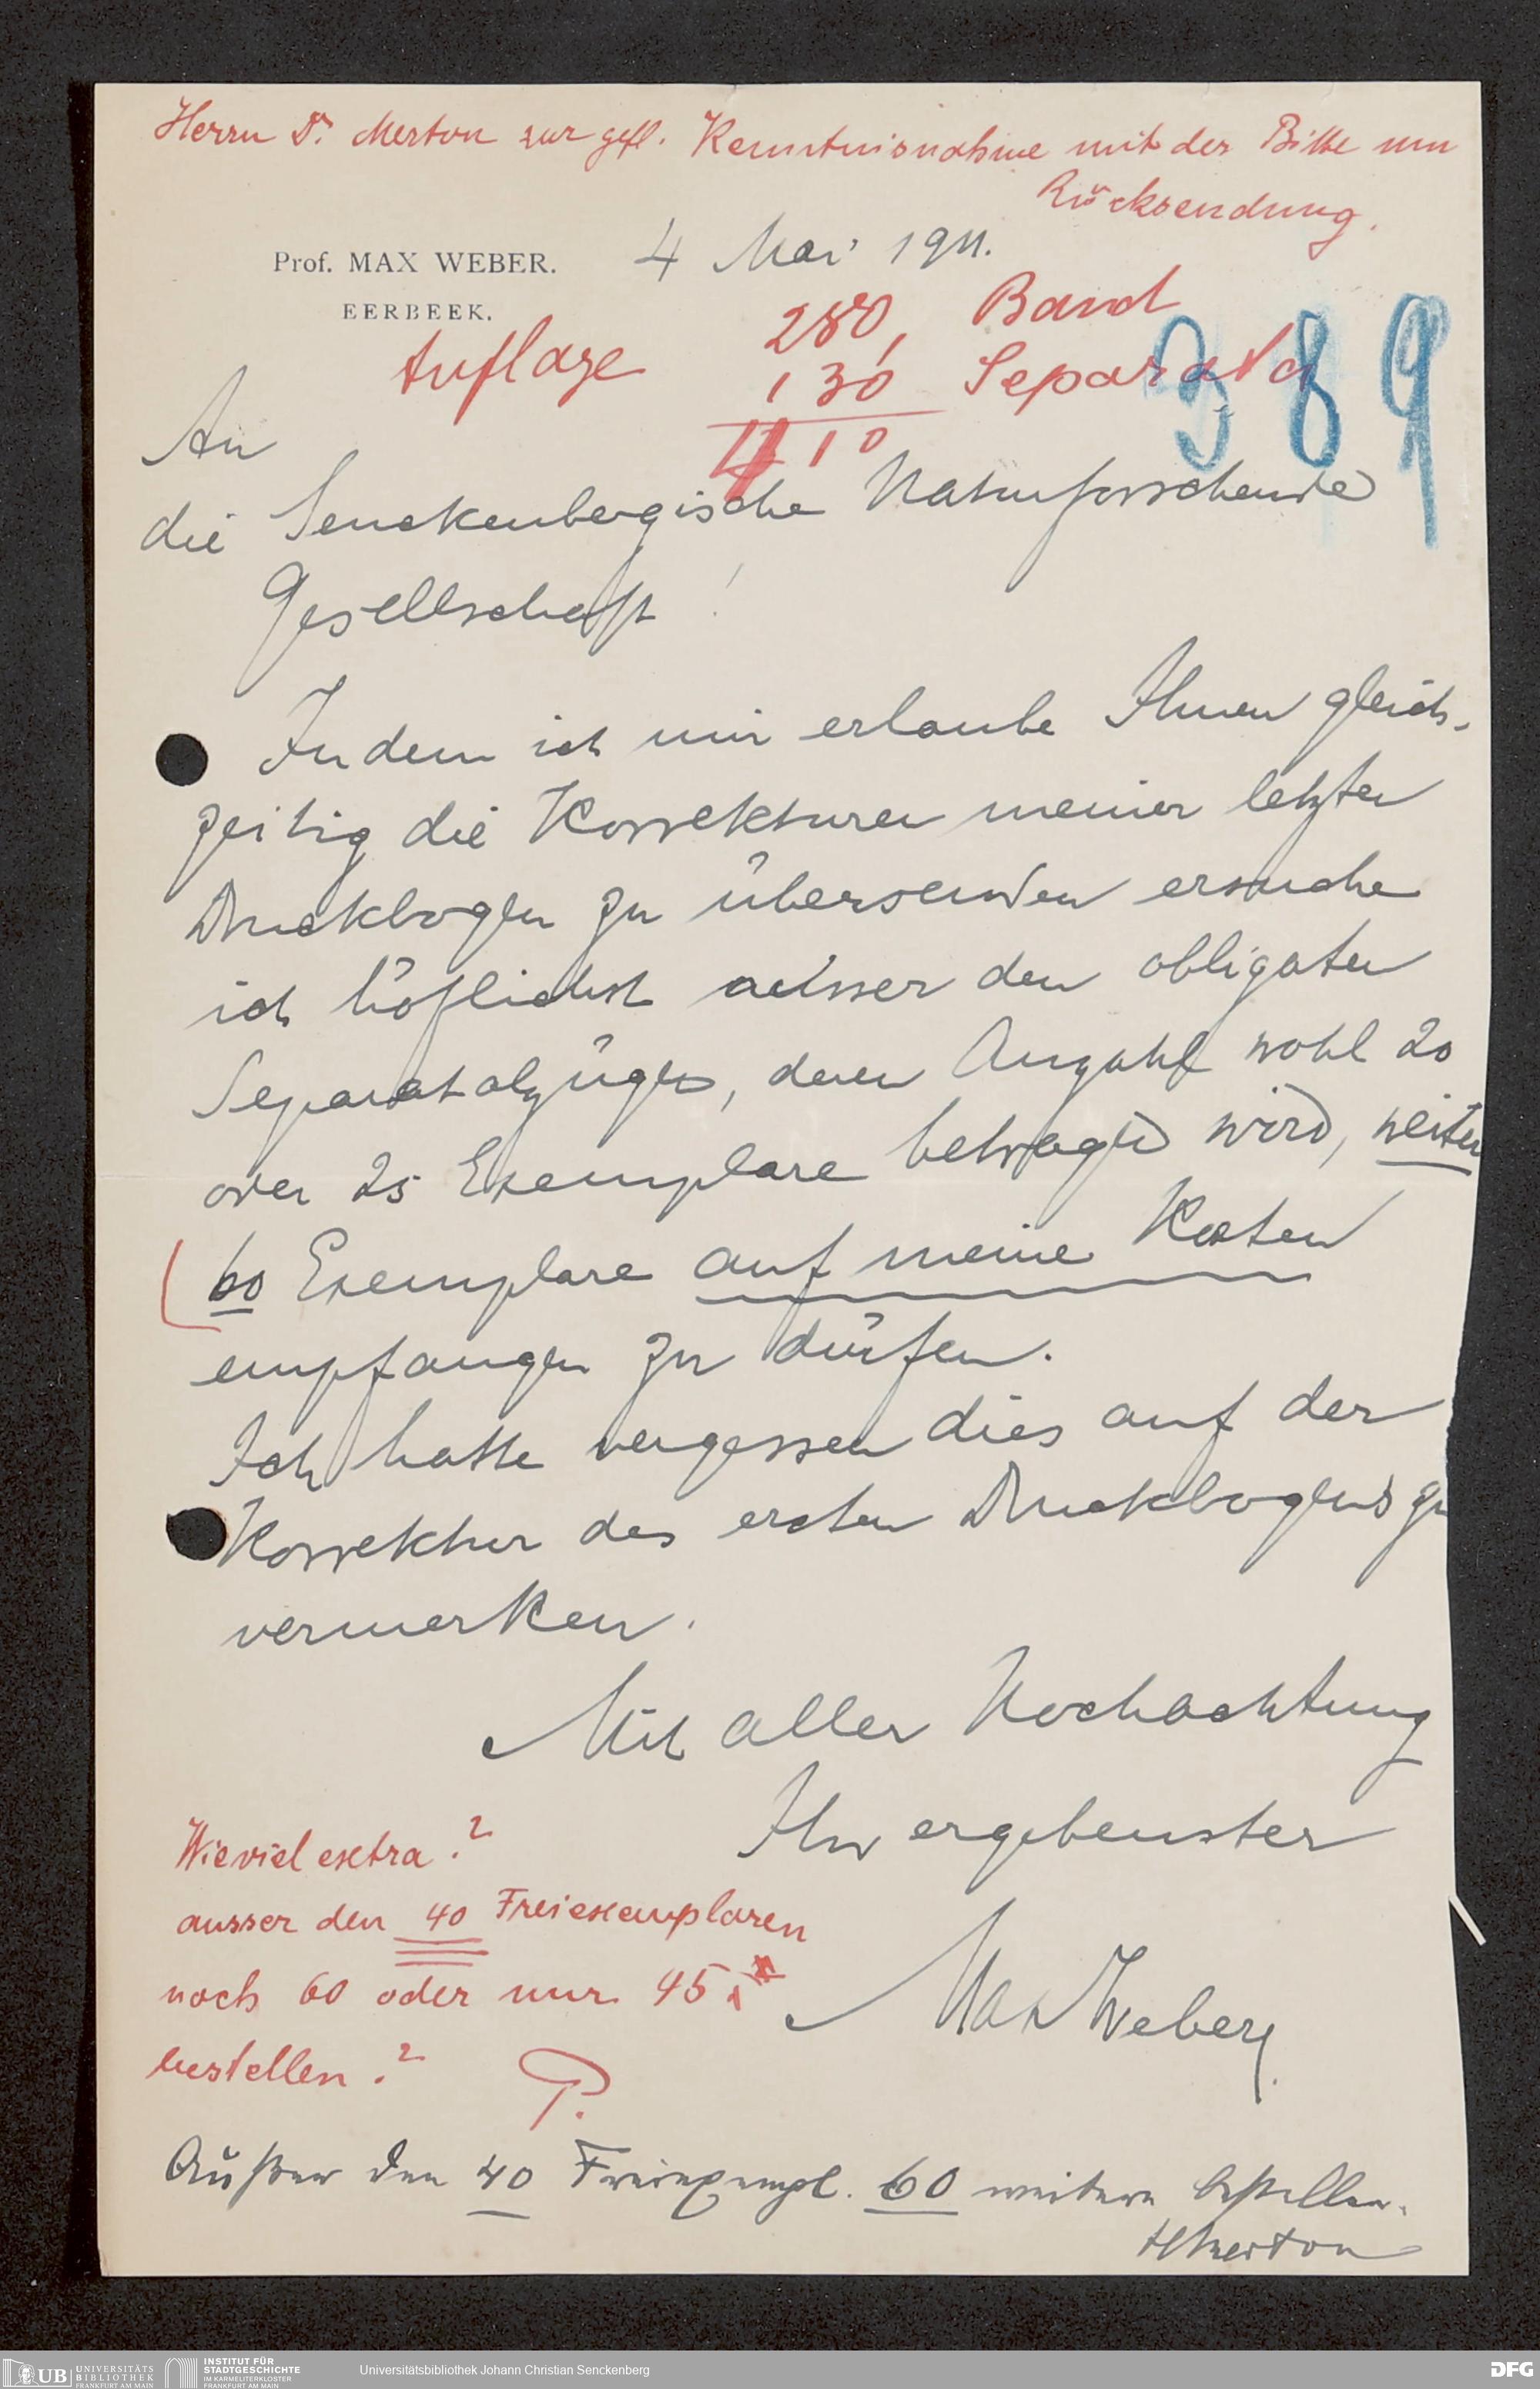 Herrn Dr. Merton zur gefl. Kenntnisnahme mit der Bitte um
Rücksendung.
Prof. MAX WEBER.
EERBEEK.
4 Mai 1911.
Auflage
280, Band
130 Separata
410
389
An
die Senckenbergische Naturforschende
Gesellschaft!
Indem ich mir erlaube Ihnen gleich-
zeitig die Korrekturen meiner letzten
Druckbogen zu übersenden ersuche
ich höflichst ausser den obligaten
Separatabzügen, deren Anzahl wohl 20
oder 25 Exemplare betragen wird, weiter
60 Exemplare auf meine Kosten
empfangen zu dürfen.
Ich hatte vergessen dies auf der
Korrektur des ersten Druckbogens zu
vermerken.
Mit aller Hochachtung
Ihr ergebenster
Max Weber.
Wieviel extra?
ausser den 40 Freiexemplaren
noch 60 oder nur 45
bestellen?
P.
Außer den 40 Freiexempl. 60 weitere bestellen.
HMerton
UB UNIVERSITÄTS
BIBLIOTHEK
FRANKFURT AM MAIN
INSTITUT FÜR
STADTGESCHICHTE
IM KARMELITERKLOSTER
FRANKFURT AM MAIN
Universitätsbibliothek Johann Christian Senckenberg
DFG